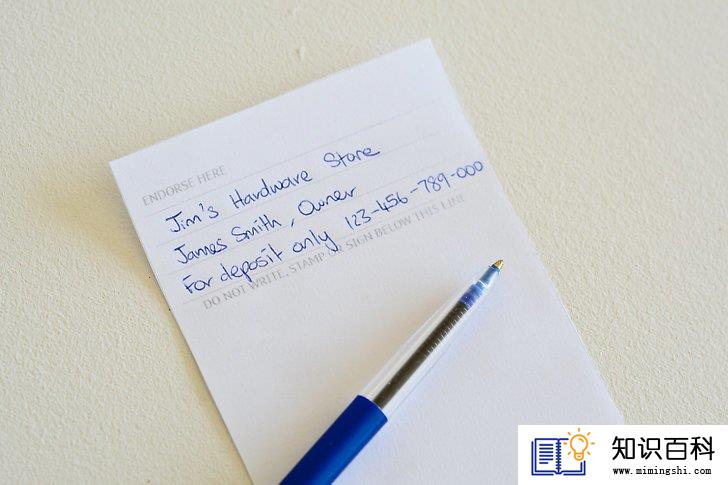 ENDORSE HERE
Jim's Hardware Store
James Smith, Owner
For deposit only 123-456-789-000
DO NOT WRITE, STAMP OR SIGN BELOW THIS LINE
知识百科
www.mimingshi.com